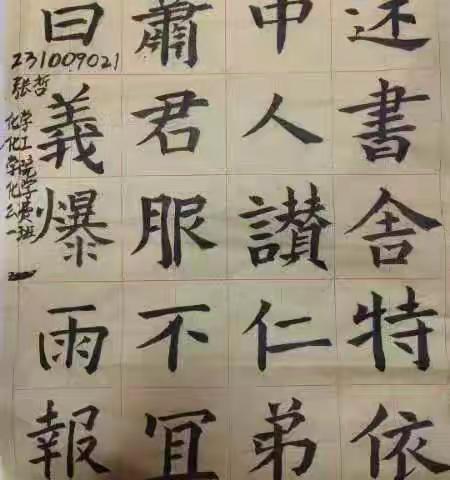 書舍特依
申人讃仁弟
肅君服不宜
曰義爆雨報
231009021
张哲
化学
化工
学院
化学
一班